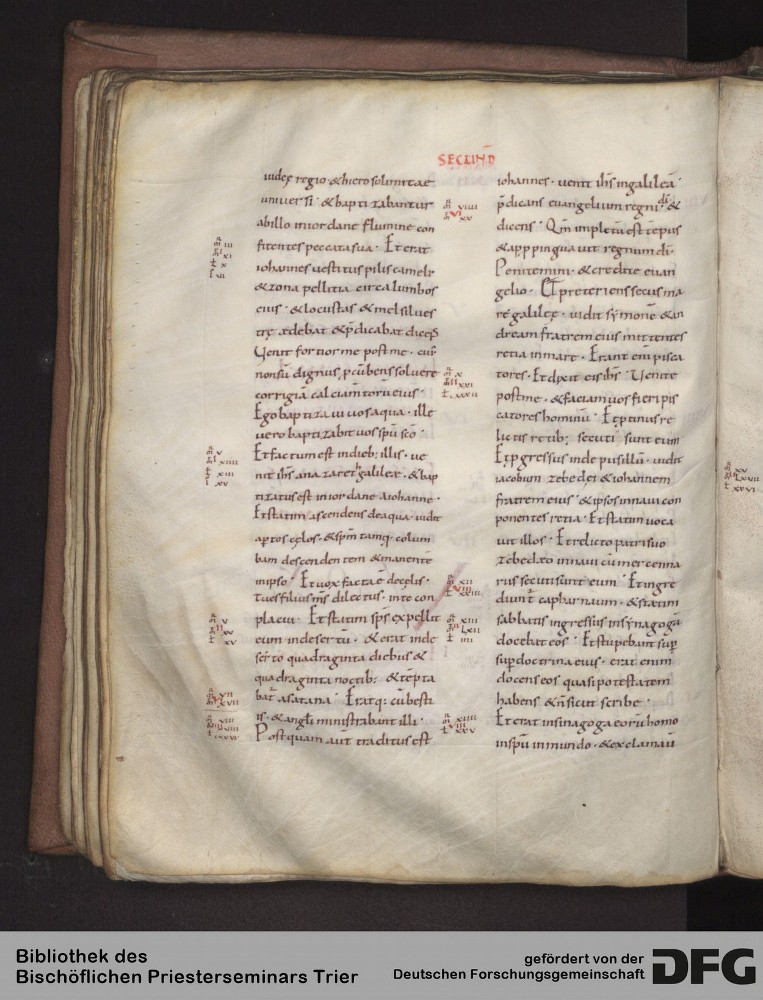 SECUND
iudeę regio · & hierosolimitae
uniuersi · & baptizabantur
abillo iniordane flumine con
fitentes peccata sua · Et erat
iohannes uestitus pilis cameli
& zona pellitia circa lumbos
eius · & locustas & mel silues
trę ędebat & p̄dicabat dicens
Uenit fortior me post me · cui᷒
non sū dignus p̄cūbens soluere
corrigiā calciamtorū eius ·
Ego baptizaui uos aqua · ille
uero baptizabit uos sp̄u sc̄o ·
Et factum est indieb; illis · ue
nit ih̄s anazareth galileæ · & bap
tizatus est iniordane aiohanne ·
Et statim ascendens deaqua · uidit
aptos cęlos · & sp̄m tamq· colum
bam descendentem & manente
inipso · Et uox facta ē decęlis ·
tu es filius m̄s dilectus · inte con
placui · Et statim sp̄s expellit
eum indesertū · & erat inde
serto quadraginta diebus &
quadraginta noctib; · & tēpta
bat᷒ asatana · Eratq; cū besti
is · & angl̄i ministrabant illi ·
Postquam aut̄ traditus est
iohannes · uenit ih̄s ingalileā ·
p̄dicans euangelium regni di̅ · &
dicens · Qm̄ impletū est tēpus
& appinquauit regnum di̅ ·
Penitemini · & credite euan
gelio · Et preteriens secus ma
re galileę · uidit sȳmonē & an
dream fratrem eius mittentes
retia inmare · Erant eni pisca
tores · Et dixit eis ih̄s · Uenite
post me · & faciam uos fieri pis
catores hominū · Et p̄tinus re
lictis retib; secuti sunt eum
Et p̄gressus inde pusillū · uidit
iacobum zebedei & iohannem
fratrem eius · & ipsos innaui con
ponentes retia · Et statim uoca
uit illos · Et relicto patri suo
zebedeo innaui cū mercenna
riis secuti sunt eum · Et ingre
diunt᷒ capharnaum · & statim
sabbatis ingressus insynagogā
docebat eos · Et stupebant sup̄
sup̄ doctrina eius · erat enim
docens eos quasi potestatem
habens & n̄ sicut scribe ·
Et erat insinagoga eorū homo
insp̄u inmundo · & exclamauit
Bibliothek des
Bischöflichen Priesterseminars Trier
gefördert von der
Deutschen Forschungsgemeinschaft
DFG